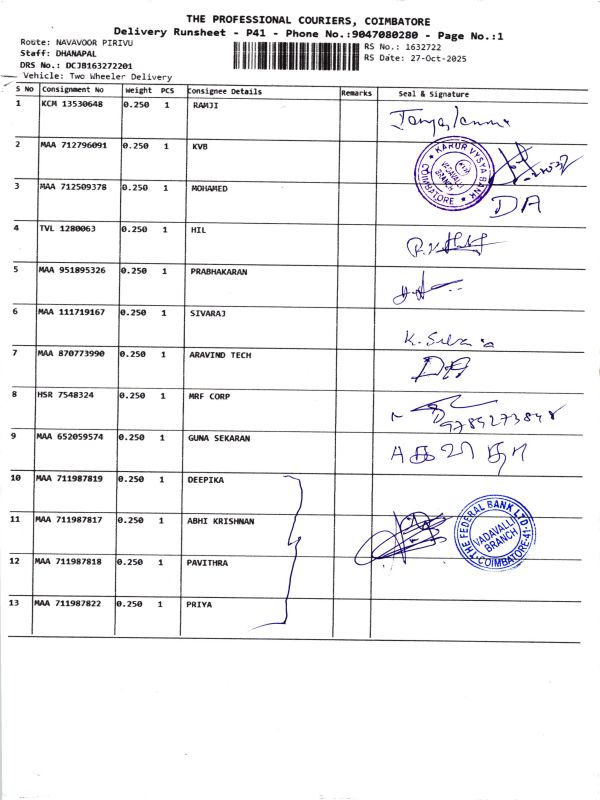 THE PROFESSIONAL COURIERS, COIMBATORE
Delivery Runsheet - P41 - Phone No.:9047080280 - Page No.:1
Route: NAVAVOOR PIRIVU
Staff: DHANAPAL
DRS No.: DCJB163272201
Vehicle: Two Wheeler Delivery
RS No.: 1632722
RS Date: 27-Oct-2025
S No Consignment No Weight PCS Consignee Details Remarks Seal & Signature
1 KCM 13530648 0.250 1 RAMJI
2 MAA 712796091 0.250 1 KVB
KARUR VYSYA BANK
VADAVALLI
BRANCH
COIMBATORE
3 MAA 712509378 0.250 1 MOHAMED
DA
4 TVL 1280063 0.250 1 HIL
5 MAA 951895326 0.250 1 PRABHAKARAN
6 MAA 111719167 0.250 1 SIVARAJ
7 MAA 870773990 0.250 1 ARAVIND TECH
8 HSR 7548324 0.250 1 MRF CORP
9 MAA 652059574 0.250 1 GUNA SEKARAN
10 MAA 711987819 0.250 1 DEEPIKA
11 MAA 711987817 0.250 1 ABHI KRISHNAN
THE FEDERAL BANK LTD.
VADAVALLI
BRANCH
COIMBATORE-41
12 MAA 711987818 0.250 1 PAVITHRA
13 MAA 711987822 0.250 1 PRIYA